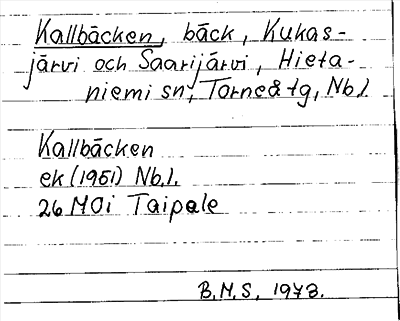 Kallbäcken, bäck, Kukas-
järvi och Saarijärvi, Hieta-
niemi sn, Torneå tg, Nb.l.
Kallbäcken
ek (1961) Nb.l.
26 M0i Taipale
B.M.S, 1973.